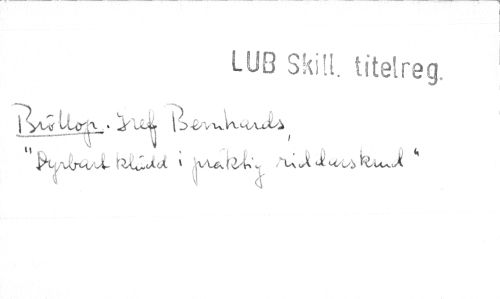 LUB Skill. titelreg.
Bröllop. Gref Bernhards,
"Dyrbart klädd i präktig riddarskrud"